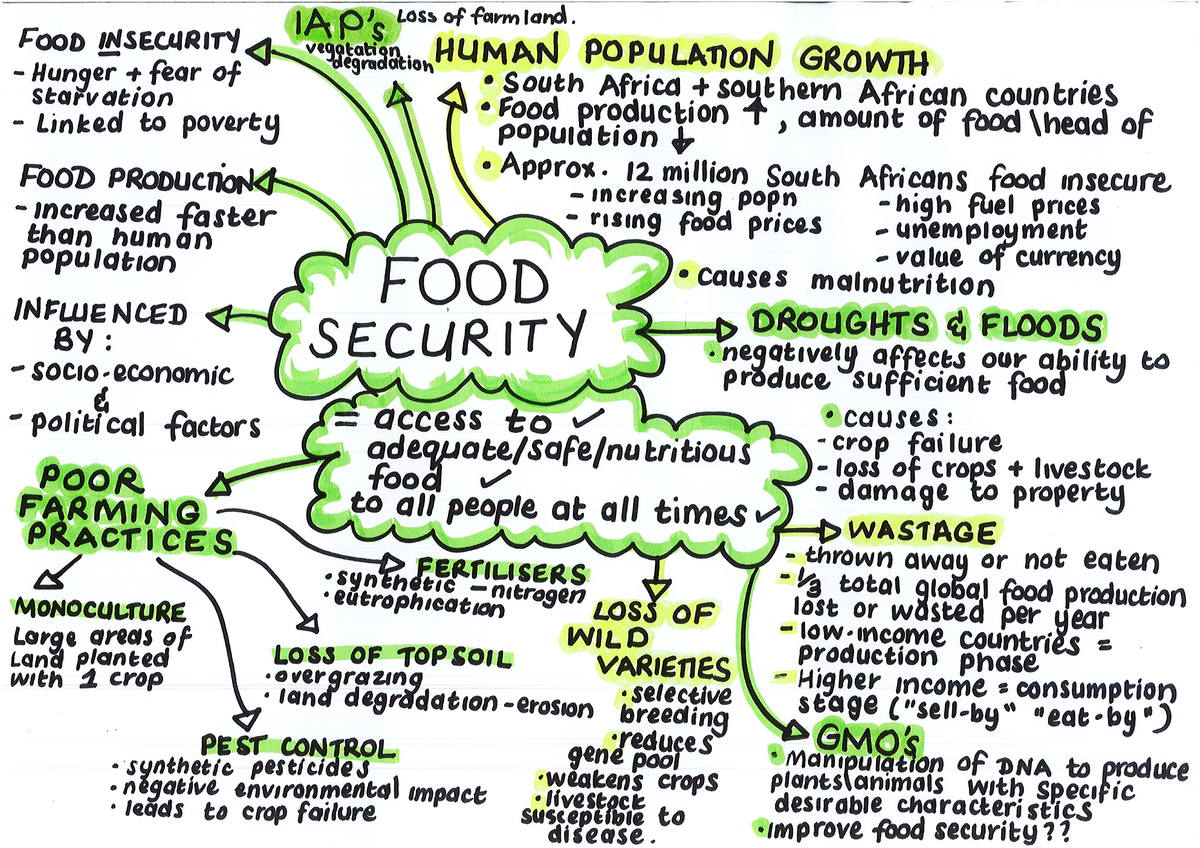 FOOD INSECURITY
- Hunger + fear of
starvation
- Linked to poverty
FOOD PRODUCTION
- increased faster
than human
population
INFLUENCED
BY :
- socio-economic
&
- political factors
IAP's
Loss of farmland.
vegatation
degradation
HUMAN POPULATION GROWTH
• South Africa + southern African countries
• Food production ↑, amount of food\head of
population ↓
• Approx. 12 million South Africans food insecure
- increasing popn
- rising food prices
- high fuel prices
- unemployment
- value of currency
• causes malnutrition
FOOD
SECURITY
= access to ✓
adequate/safe/nutritious
food ✓
to all people at all times ✓
DROUGHTS & FLOODS
• negatively affects our ability to
produce sufficient food
• causes:
- crop failure
- loss of crops + livestock
- damage to property
WASTAGE
- thrown away or not eaten
- 1/3 total global food production
lost or wasted per year
- low-income countries =
production phase
- Higher income = consumption
stage ("sell-by" "eat-by")
GMO's
• Manipulation of DNA to produce
plants\animals with specific
desirable characteristics
• improve food security??
LOSS OF
WILD
VARIETIES
• selective
breeding
• reduces
gene pool
• weakens crops
• livestock
susceptible to
disease.
POOR
FARMING
PRACTICES
FERTILISERS
• synthetic - nitrogen
• eutrophication
MONOCULTURE
Large areas of
Land planted
with 1 crop
LOSS OF TOPSOIL
• overgrazing
• land degradation - erosion
PEST CONTROL
• synthetic pesticides
• negative environmental impact
• leads to crop failure